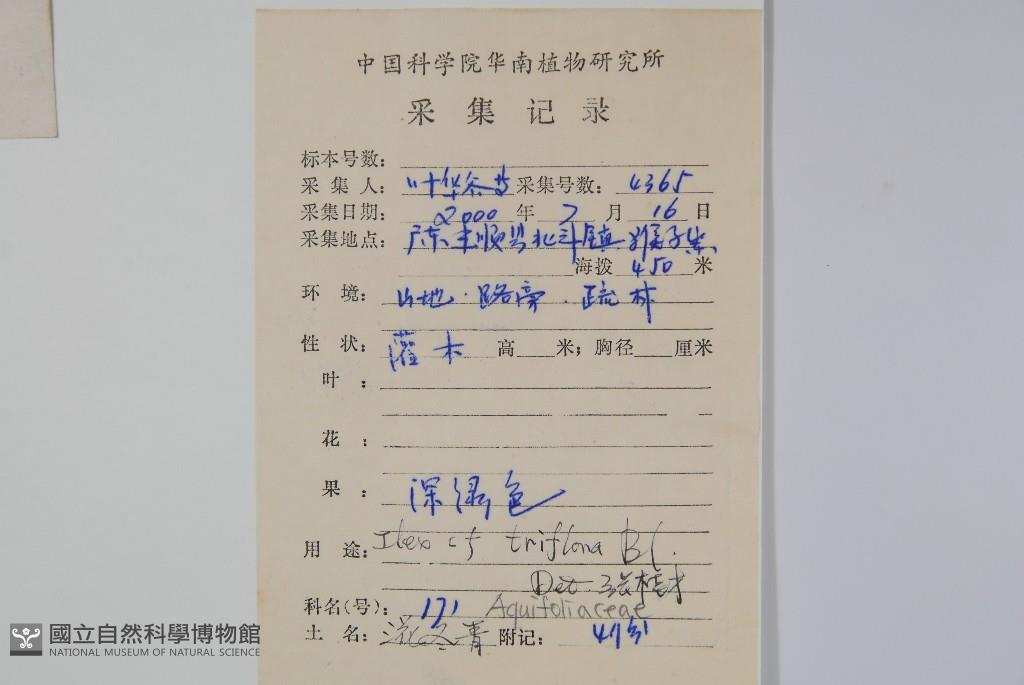 中国科学院华南植物研究所
采集记录
标本号数:
采集人: 叶华谷等 采集号数: 4365
采集日期: 2000 年 7 月 16 日
采集地点: 广东丰顺县北斗镇
海拨 450 米
环境: 山地.路旁.疏林
性状: 灌木 高 米; 胸径 厘米
叶:
花:
果: 深绿色
用途: Ilex cf triflora Bl.
Det 张桂才
科名(号): 171 Aquifoliaceae
土名: 冬青 附记: 4份
國立自然科學博物館
NATIONAL MUSEUM OF NATURAL SCIENCE